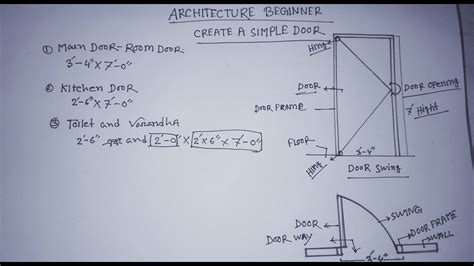 ARCHITECTURE BEGINNER
CREATE A SIMPLE DOOR
① Main DOOR-ROOM DOOR
3'-4" X 7'-0"
② Kitchen DOOR
2'-6" X 7'-0"
③ Toilet and Varandha
2'-6" and 2'-0" X 2'X6" X 7'-0"
Hing
DOOR
DOOR FRAME
FLOOR
Hing
3'-4"
DOOR OPENING
7' Hight
DOOR Swing
DOOR
DOOR WAY
SWING
DOOR FRAME
WALL
3'-4"